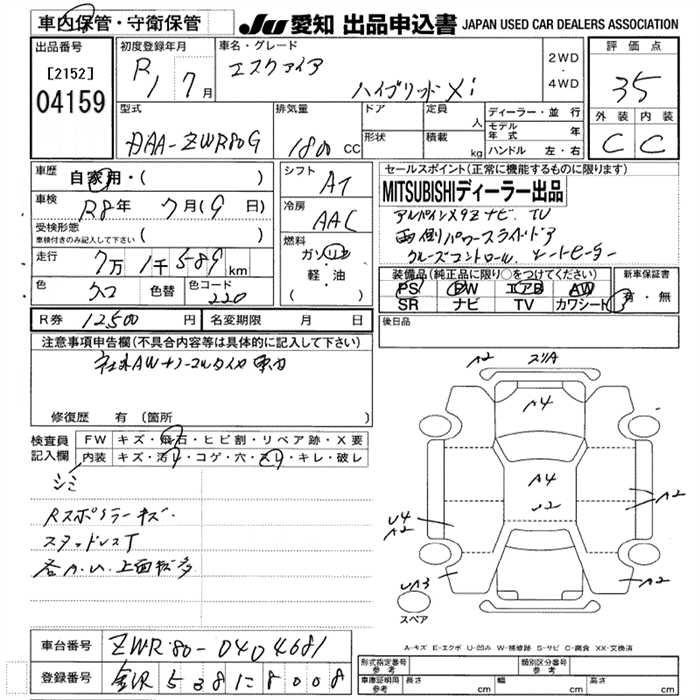 車内保管・守衛保管
JU 愛知 出品申込書 JAPAN USED CAR DEALERS ASSOCIATION
出品番号
[2152]
04159
初度登録年月
R1 7月
車名・グレード
エスクァイア
ハイブリッド Xi
2WD
・
4WD
評価点
35
外装 内装
C C
型式
DAA-ZWR80G
排気量
1800 CC
ドア
形状
定員
人
積載
kg
ディーラー・並行
モデル年式 年
ハンドル 左・右
車歴
自家用・( )
車検
R8年 7月(9日)
受検形態
車検付きのみ記入して下さい ( )
走行
7万 1千589km
色
クロ
色替
色コード
220
シフト
AT
冷房
AAC
燃料
ガソリン
・
軽・油
( )
セールスポイント(正常に機能するものに限ります)
MITSUBISHIディーラー出品
アルパインX9型ナビ. TV
両側パワースライドドア
クルーズコントロール. シートヒーター
装備品(純正品に限り○をつけてください)
PS PW エアB AW
SR ナビ TV カワシート
新車保証書
有・無
R券 12500円
名変期限 月 日
後日品
注意事項申告欄(不具合内容等は具体的に記入して下さい)
修復歴 有 (箇所 )
検査員
記入欄
FW キズ・飛石・ヒビ割・リペア跡・X要
内装 キズ・汚レ・コゲ・穴・スレ・キレ・破レ
シミ
Rスポイラーキズ.
スタッドレスT
各A.U.上面転多
A2 ズリA
A4
A4
U2
U4
A2
A2
A2
UA3
A2
スペア
A-キズ E-エクボ U-凹み W-補修跡 S-サビ C-腐食 XX-交換済
車台番号 ZWR80-0404681
登録番号 538 8008
形式指定番号
参考
類別区分番号
参考
車庫証明用
参考
長さ cm 幅 cm 高さ cm